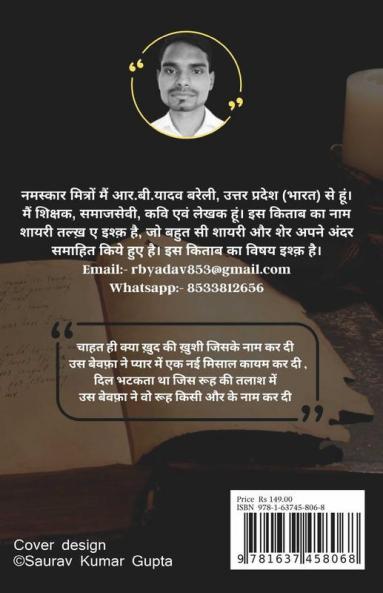 नमस्कार मित्रों मैं आर.बी.यादव बरेली, उत्तर प्रदेश (भारत) से हूं।
मैं शिक्षक, समाजसेवी, कवि एवं लेखक हूं। इस किताब का नाम
शायरी तल्ख़ ए इश्क़ है, जो बहुत सी शायरी और शेर अपने अंदर
समाहित किये हुए है। इस किताब का विषय इश्क़ है।
Email:- rbyadav853@gmail.com
Whatsapp:- 8533812656
चाहत ही क्या ख़ुद की ख़ुशी जिसके नाम कर दी
उस बेवफ़ा ने प्यार में एक नई मिसाल कायम कर दी ,
दिल भटकता था जिस रूह की तलाश में
उस बेवफ़ा ने वो रूह किसी और के नाम कर दी
Price Rs 149.00
ISBN 978-1-63745-806-8
9 781637 458068
Cover design
©Saurav Kumar Gupta